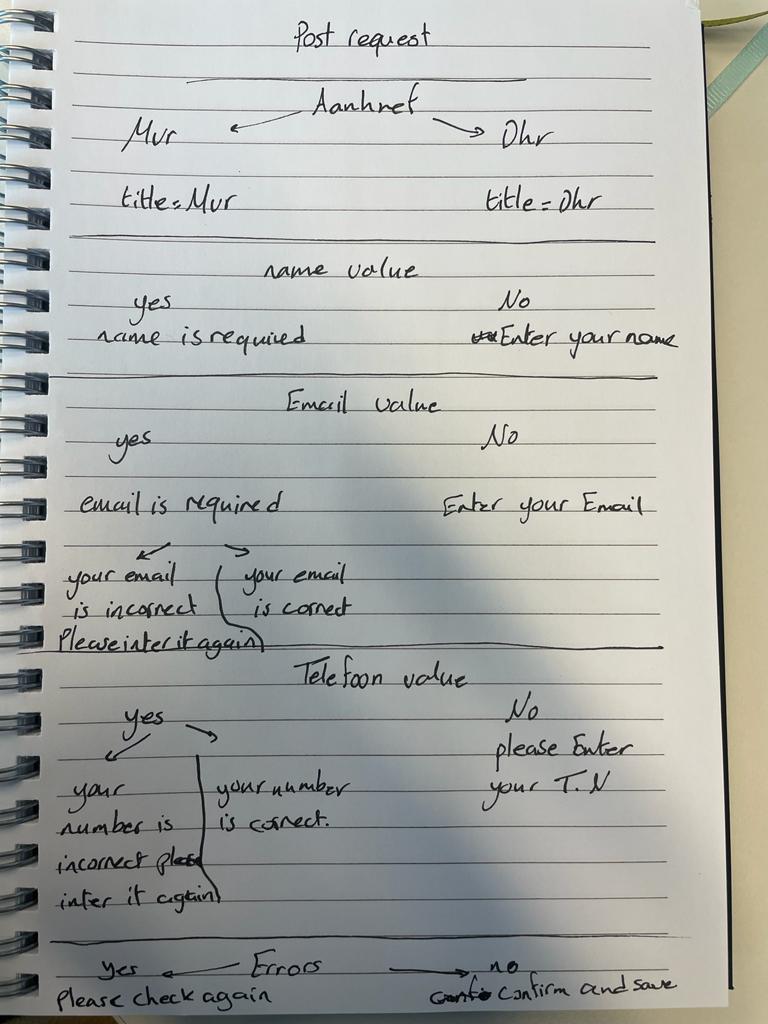 Post request
Aanhnef
Mvr Dhr
title=Mvr title=Dhr
name value
yes No
name is required Enter your name
Email value
yes No
email is required Enter your Email
your email your email
is incorrect is correct
Please inter it again
Telefoon value
yes No
please Enter
your your number your T.N
number is is correct.
incorrect
inter it again
yes Errors no
Please check again Confirm and save